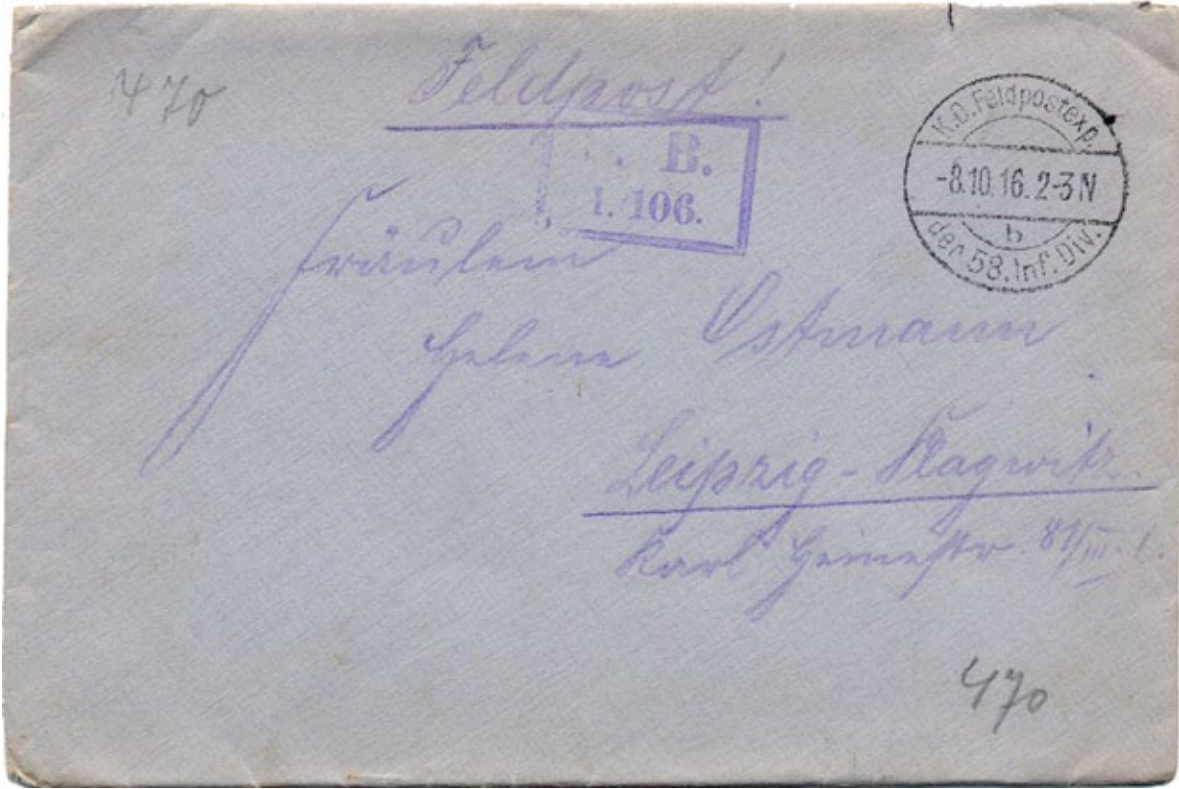 470
Feldpost!
B.
I. 106.
K.D. Feldpostexp.
-8.10.16. 2-3 N
b
der 58. Inf. Div.
Fräulein
Helene Ostmann
Leipzig-Plagwitz.
Karl Heinestr. 81/III. l.
470